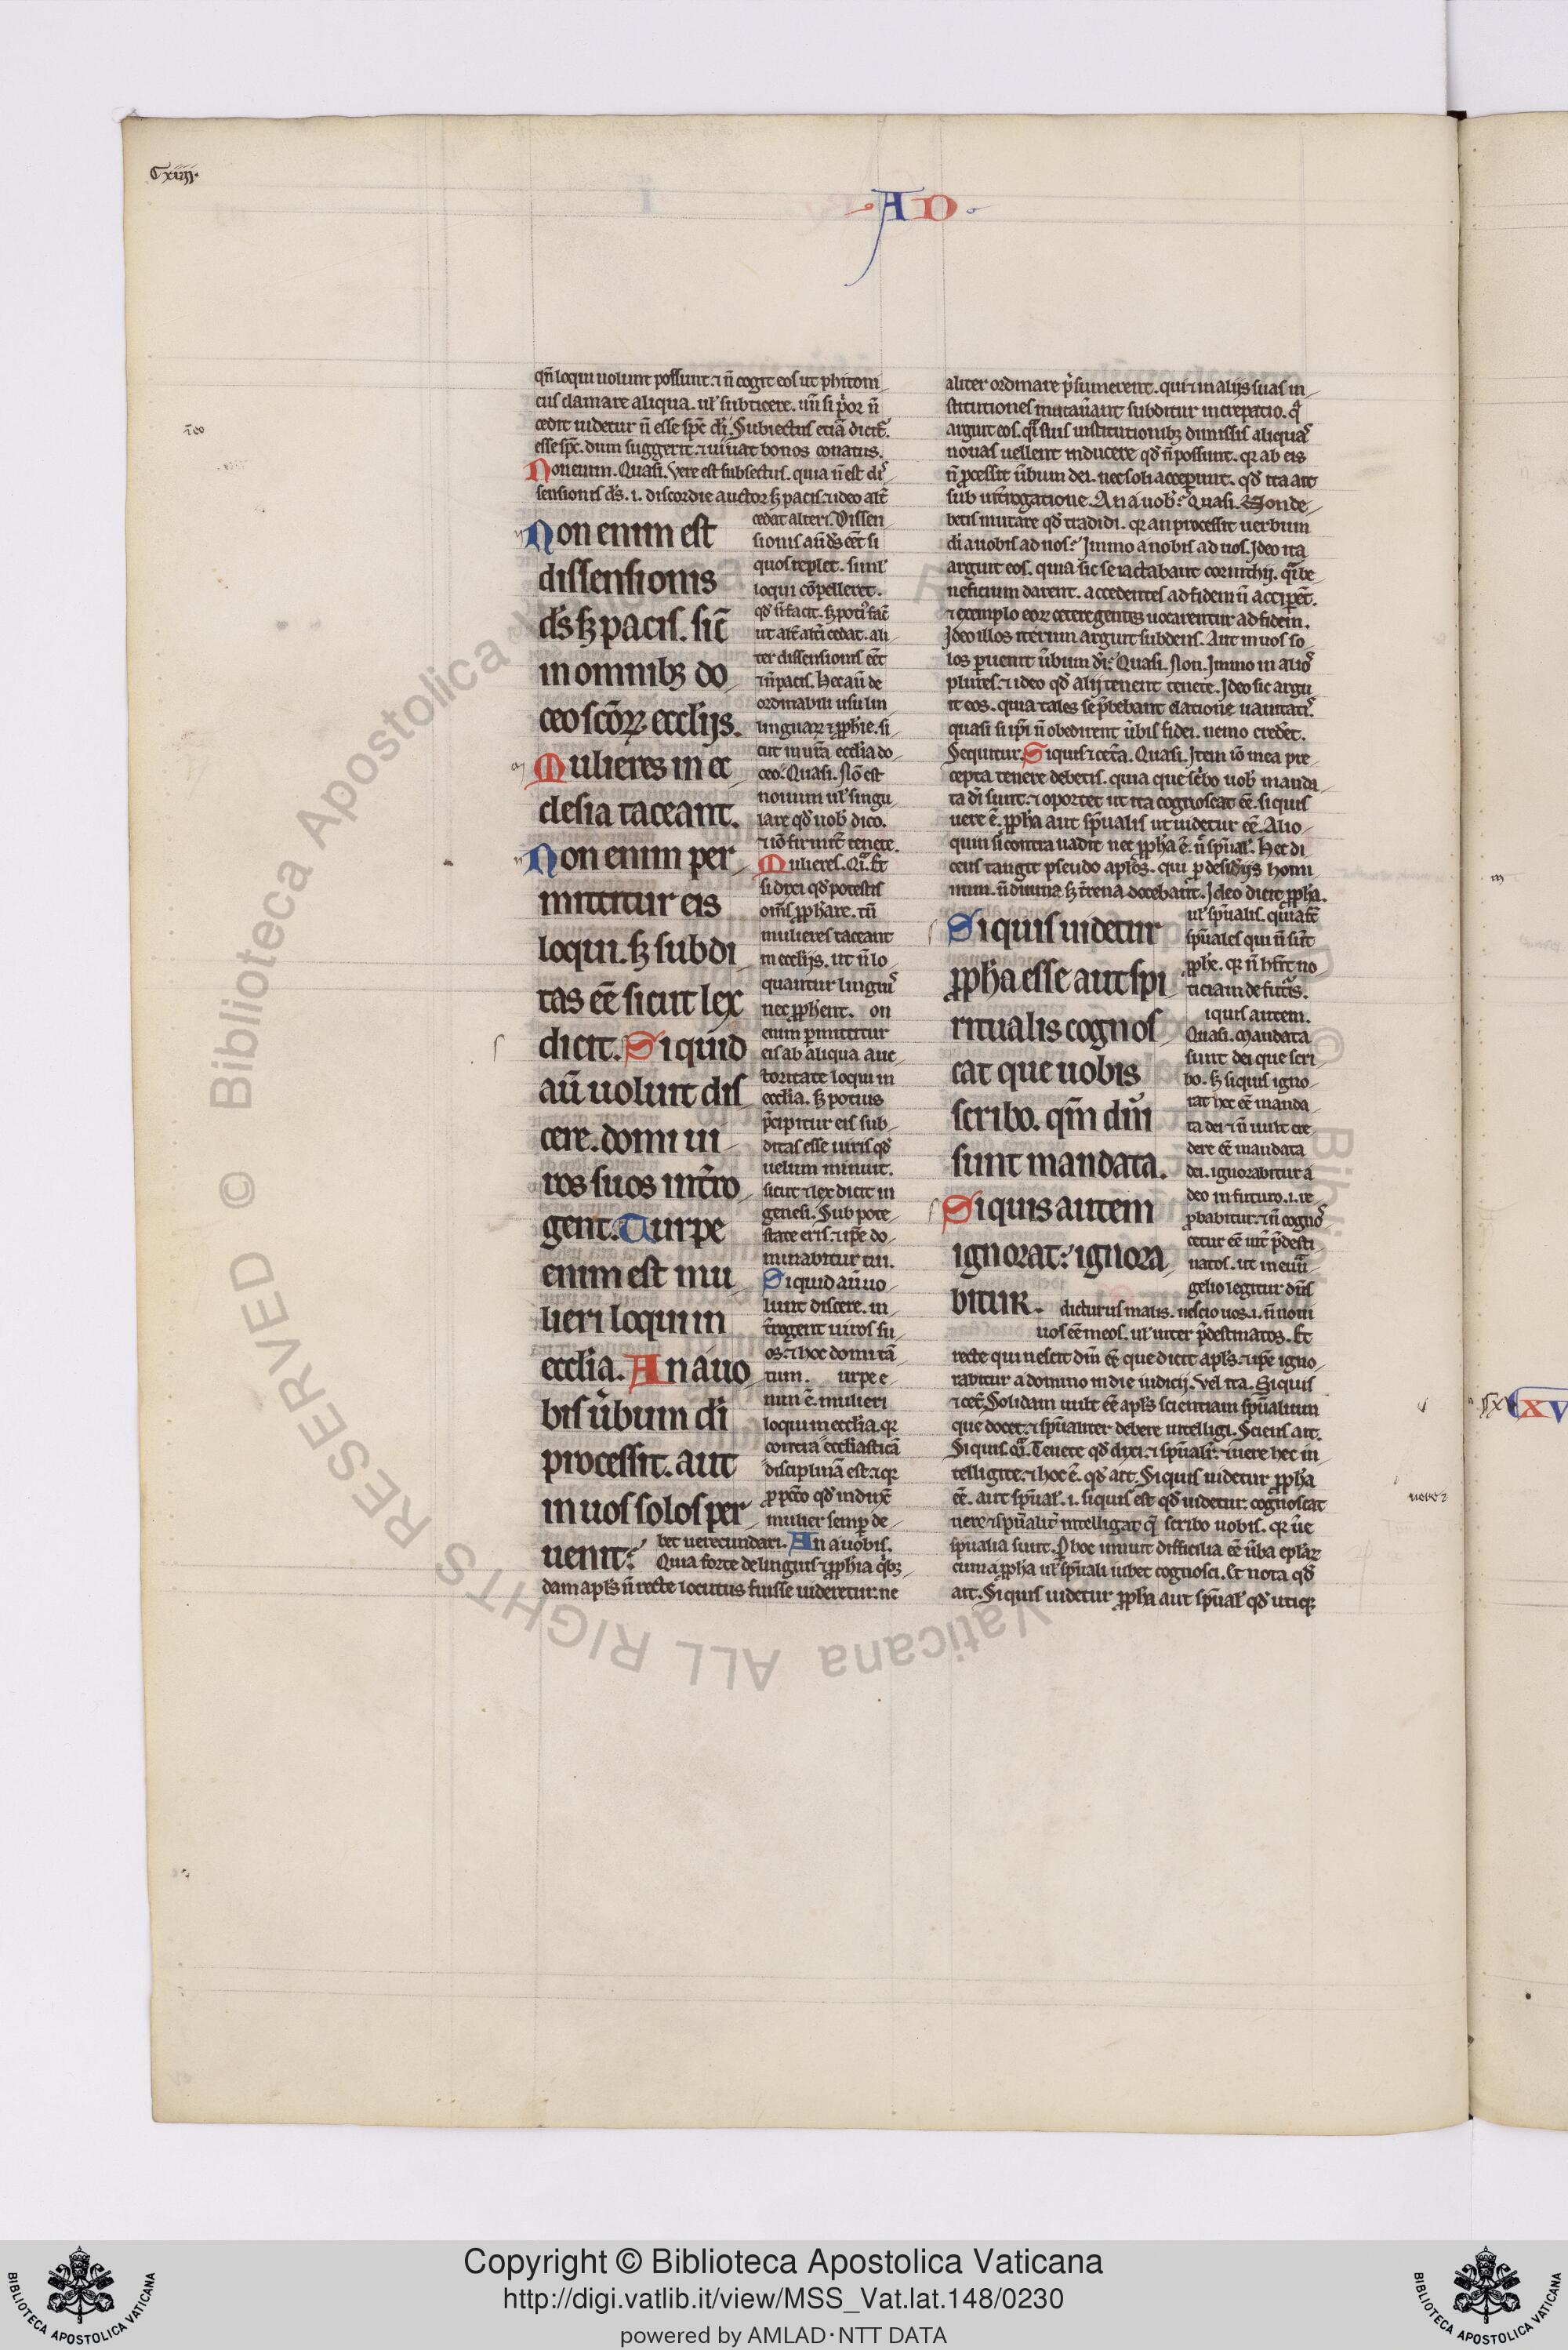 Cxiiij.
AD
qn̄ loqui uolunt possunt. ⁊ n̄ cogit eos ut phitoni
cus clamare aliqua. ul' subticere. un̄ si p̓or n̄
cedit uidetur n̄ esse sp̄c di. Subiectus etiā dicit̄.
esse sp̄c. dum suggerit. ⁊ iuuat bonos conatus.
Non enim. Quasi. Vere est subiectus. quia n̄ est di
sensionis ds̄. i. discordie auctor sꝫ pacis. ⁊ ideo alt̄
Non enim est
dissensionis
ds̄ sꝫ pacis. sic̄
in omnibꝫ do
ceo sc̄oꝝ eccl̄ijs.
Mulieres in ec
clesia taceant.
Non enim per
mittitur eis
loqui. sꝫ subdi
tas eē sicut lex
dicit. Si quid
aū uolunt dis
cere. domi ui
ros suos int̄ro
gent. Turpe
enim est mu
lieri loqui in
eccl̄ia. An a uo
bis u̓bum di
processit. aut
in uos solos per
uenit?
cedat alteri. Dissen
sionis aū ds̄ eēt si
quos replet. simul'
loqui cōpelleret.
qd̓ n̄ facit. sꝫ poti' fac̄
ut alt̄ alt̄i cedat. ali
ter dissensionis eēt
⁊ n̄ pacis. Hec aū de
ordinabili usu lin
linguaꝝ ⁊ ꝓph̄ie. si
cut in ur̄a eccl̄ia do
ceo. Quasi. Nō est
nouum ul' singu
lare qd̓ uob̓ dico.
⁊ iō firmit̄ tenete.
Mulieres. Qͣ. Et
si dixi qd̓ potestis
om̄s ꝓph̄are. tn̄
mulieres taceant
in eccl̄ijs. ut n̄ lo
quantur linguis
nec ꝓph̄ent. on
enim ꝑmittitur
eis ab aliqua auc
toritate loqui in
eccl̄ia. sꝫ potius
p̄cipitur eis sub
ditas esse uiris qd̓
uelum minuit.
sicut ⁊ lex dicit in
genesi. Sub pote
state eris. ⁊ ip̄e do
minabitur tui.
Si quid aū uo
lunt discere. in
t̄rogent uiros su
os. ⁊ hoc domi tā
tum. urpe e
nim ē. mulieri
loqui in eccl̄ia. qꝛ
contra eccl̄iasticā
disciplinā est. ⁊ qꝛ
ꝓ pcc̄o qd̓ induxit
mulier semꝑ de
bet uerecundari. An a uobis.
Quia forte de linguis ⁊ ꝓph̄ia qͥbꝫ
dam apl̄s n̄ recte locutus fuisse uideretur. ne
aliter ordinare p̄sumerent. qui ⁊ in alijs suas in
stitutiones mutauāt subditur increpatio. qͣ
arguit eos. qͣ si suis institutionibꝫ dimissis aliquas
nouas uellent inducere qd̓ n̄ possunt. qꝛ ab eis
n̄ ꝓcessit u̓bum dei. nec soli acceperunt. qd̓ ita ait
sub int̄rogatione. An a uob̓. Quasi. Non de
betis mutare qd̓ tradidi. qꝛ an processit uerbum
di a uobis ad nos? Immo a nobis ad uos. Ideo ita
arguit eos. quia sic se iactabant corinthij. qͣ si be
neficium darent. accedentes ad fidem n̄ accip̄ent.
⁊ exemplo eoꝝ cetere gentes uocarentur ad fidem.
Ideo illos iterum arguit subdens. Aut in uos so
los ꝑuenit u̓bum di? Quasi. Non. Immo in alios
plures. ⁊ ideo qd̓ alij tenent tenete. Ideo sic argu
it eos. quia tales se p̄bebant elatione uanitatis.
quasi si ip̄i n̄ obedirent u̓bis fidei. nemo crederet.
Sequitur. Si quis ⁊ cet̄a. Quasi. Item iō mea pre
cepta tenere debetis. quia que sc̓bo uob̓ manda
ta di sunt. ⁊ oportet ut ita cognoscat eē. si quis
uere ē. ꝓph̄a aut sp̄ualis ut uidetur eē. Alio
quin si contra uadit nec ꝓph̄a ē. n̄ sp̄ual'. Hec di
cens tangit pseudo apl̄os. qui ꝓ desid̓ijs homi
num. n̄ diuina sꝫ t̄rena docebant. Ideo dicit ꝓph̄a.
Si quis uidetur
ꝓph̄a esse aut spi
ritualis cognos
cat que uobis
scribo. qm̄ dn̄i
sunt mandata.
Si quis autem
ignorat? ignora
bitur.
ul' sp̄ualis. quia s̄t
sp̄uales qui n̄ sūt
ꝓph̄e. qꝛ n̄ hn̄t no
ticiam de fut̄is.
iquis autem.
Quasi. Mandata
sunt dei que scri
bo. sꝫ si quis igno
rat hec eē manda
ta dei ⁊ n̄ uult cre
dere eē mandata
dei. ignorabitur a
deo in futuro. i. re
ꝓbabitur. ⁊ n̄ cognos
cetur eē int̄ p̄desti
natos. ut in euā
gelio legitur dn̄s
dicturus malis. nescio uos. i. n̄ noui
uos eē meos. ul' inter p̄destinatos. Et
recte qui nescit dn̄i eē que dicit apl̄s. ⁊ ip̄e igno
rabitur a domino in die iudicij. Vel ita. Si quis
⁊ cet̄. Solidam uult eē apl̄s scientiam sp̄ualium
que docet. ⁊ sp̄ualiter debere intelligi. Sciens ait.
Si quis. Qͣ. Tenete qd̓ dixi. ⁊ sp̄ualit̄. ⁊ uere hec in
telligite. ⁊ hoc ē. qd̓ ait. Si quis uidetur ꝓph̄a
eē. aut sp̄ual'. i. si quis est qd̓ uidetur. cognoscat
uere ⁊ sp̄ualit̄ intelligat q̄ scribo uobis. qꝛ u̓e
sp̄ualia sunt. Ꝑ hoc innuit difficilia eē u̓ba epl̄aꝝ
cum a ꝓph̄a ul' sp̄uali iubet cognosci. Et nota qd̓
ait. Si quis uidetur ꝓph̄a aut sp̄ual' qd̓ utiqꝫ
XV
© Biblioteca Apostolica Vaticana ALL RIGHTS RESERVED
Copyright © Biblioteca Apostolica Vaticana
http://digi.vatlib.it/view/MSS_Vat.lat.148/0230
powered by AMLAD·NTT DATA
BIBLIOTECA APOSTOLICA VATICANA
BIBLIOTECA APOSTOLICA VATICANA